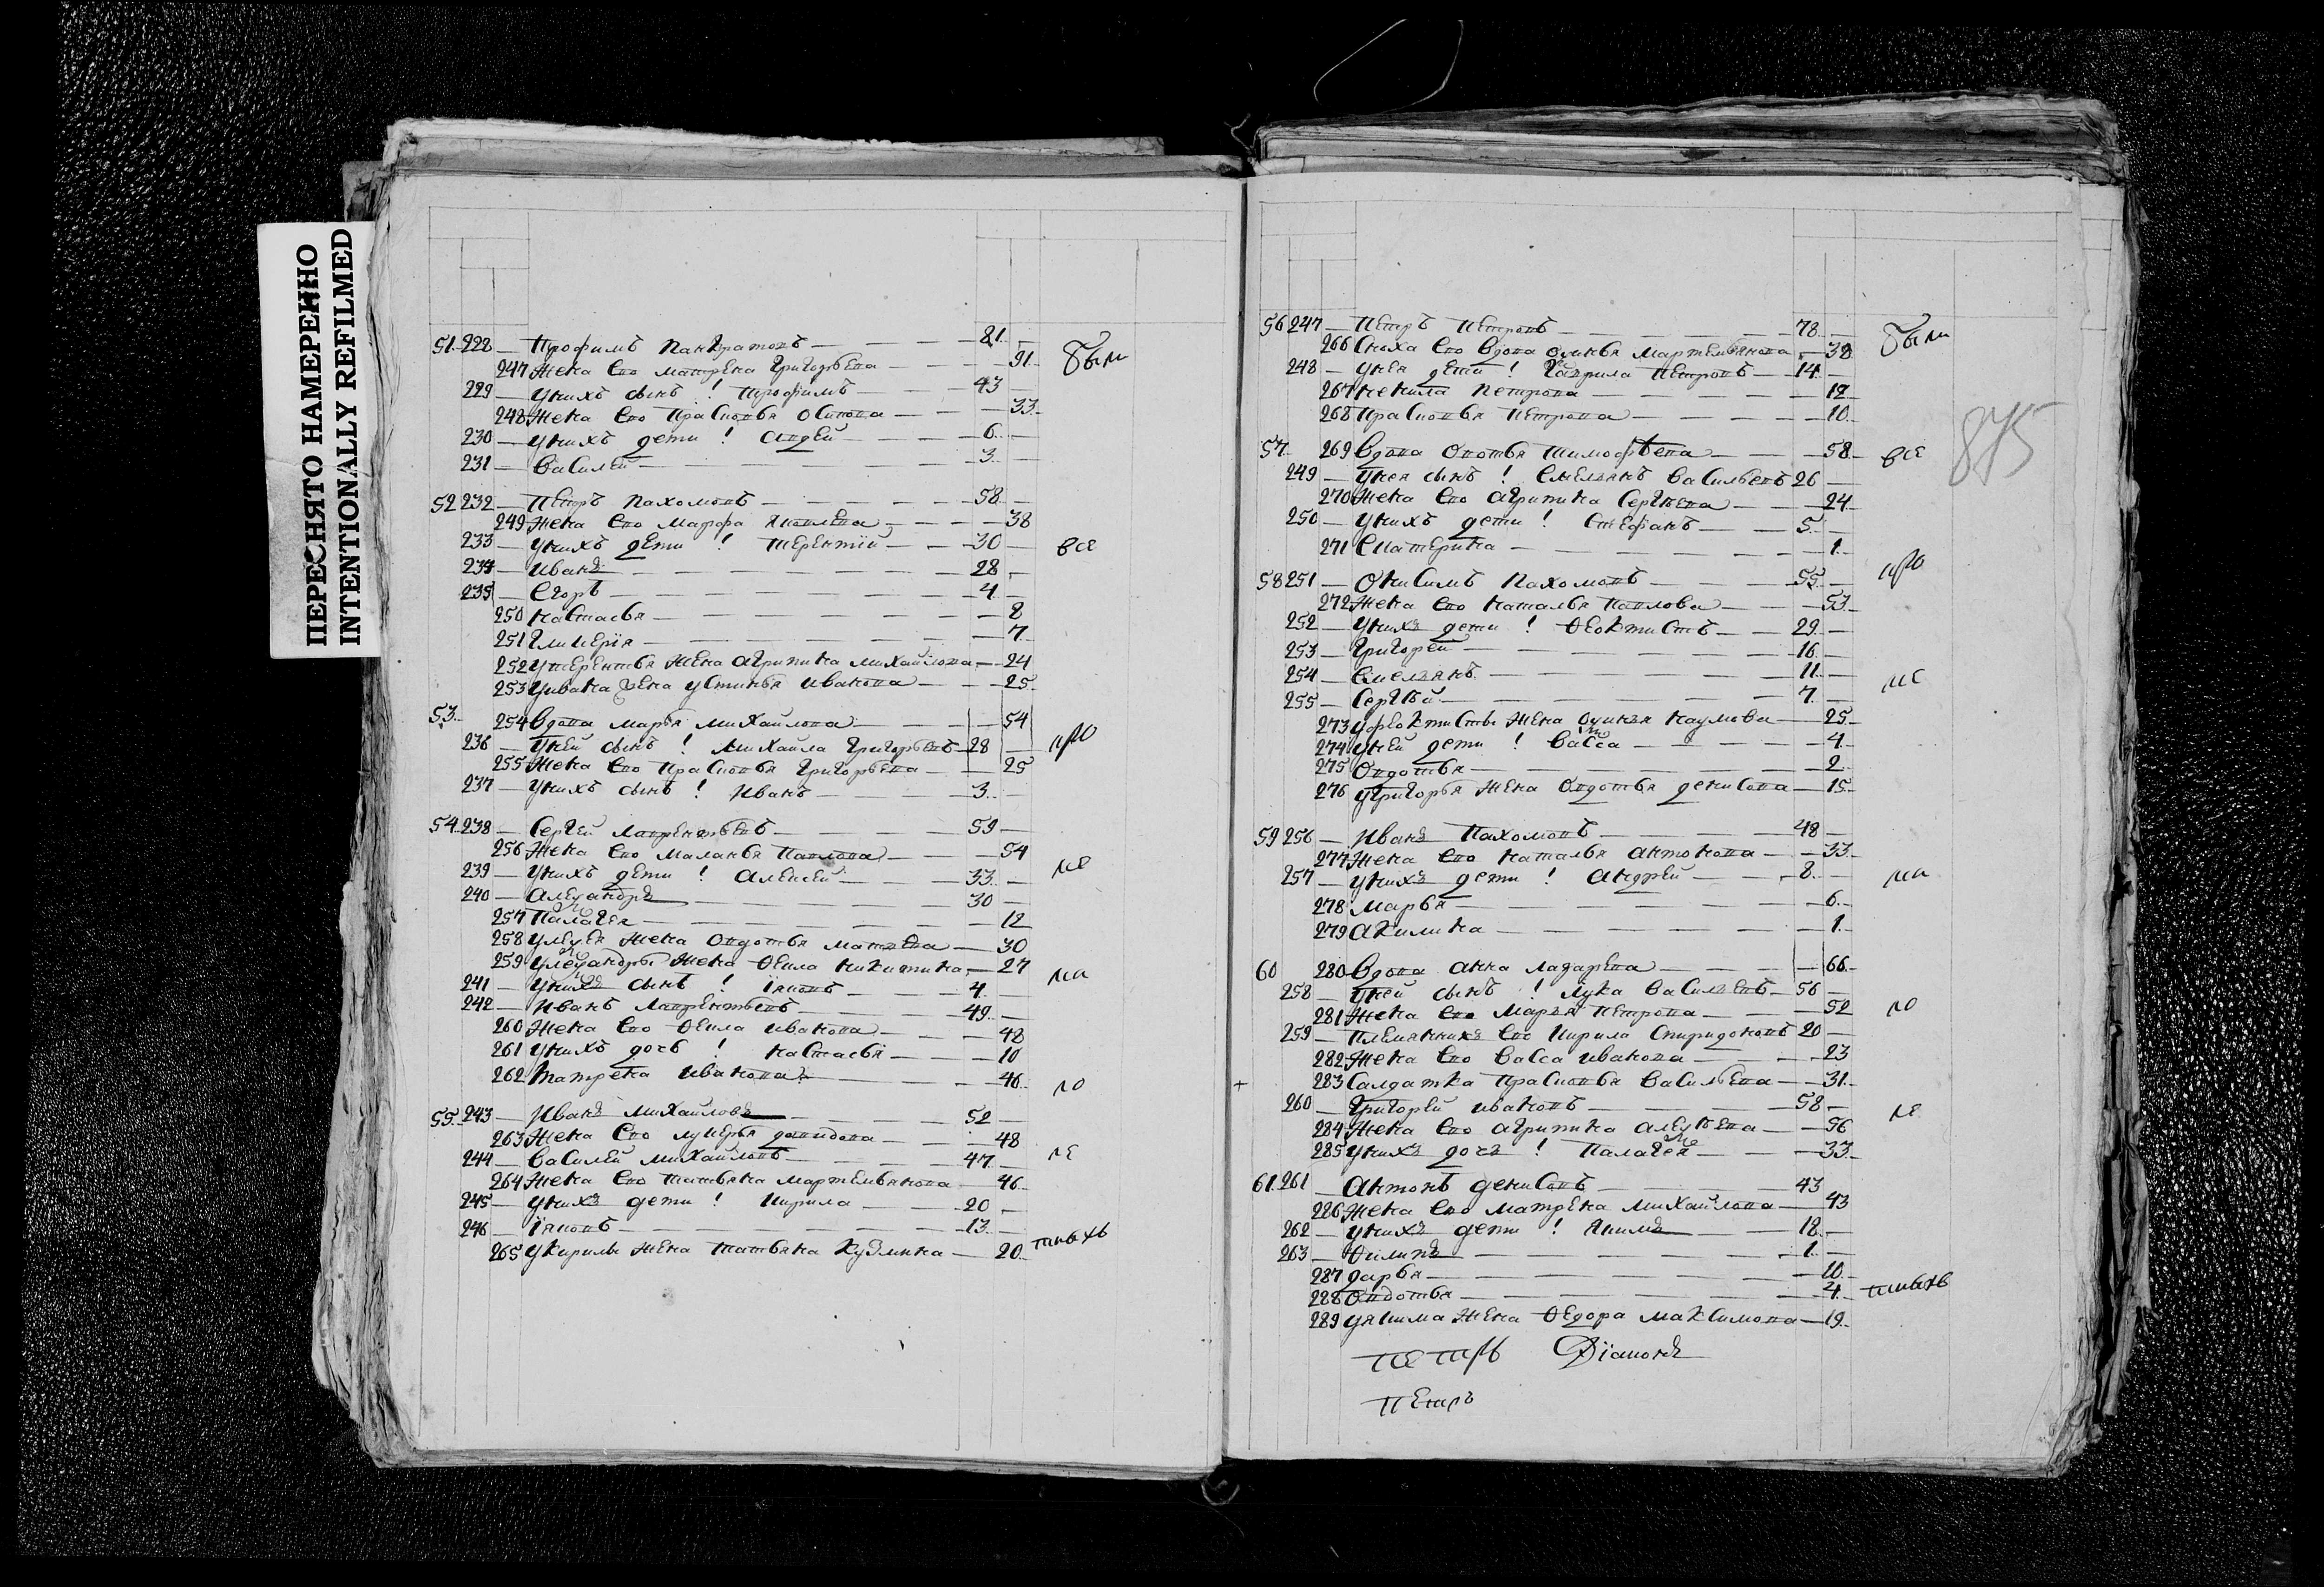 ПЕРЕСНЯТО НАМЕРЕННО
INTENTIONALLY REFILMED
51. 228 — Трофимъ Панкратовъ — 81
247 Жена Ево Матрена Григорьева — 91
были
229 — У нихъ сынъ ! Трофимъ — 43
248 Жена Ево Прасковья Осипова — 33
230 — У нихъ дети ! Авдей — 6
231 — Василей — 3
52 232 — Петръ Пахомовъ — 58
249 Жена Ево Марфа Яковлева — 38
233 — У нихъ дети ! Терентiй — 30
все
234 — Иванъ — 28
235 — Егоръ — 4
250 Настасья — 8
251 Гликерiя — 7
252 У Терентья Жена Агрипина Михайлова — 24
253 У Ивана Жена Устинья Иванова — 25
53 254 Вдова Марья Михайлова — 54
236 — У ней сынъ ! Михайла Григорьевъ — 28
при
255 Жена Ево Прасковья Григорьева — 25
237 — У нихъ сынъ ! Иванъ — 3
54. 238 — Сергей Лаврентьевъ — 59
256 Жена Ево Маланья Павлова — 54
239 — У нихъ дети ! Алексей — 33
240 — Александръ — 30
257 Палагея — 12
258 У Алексея Жена Овдотья Матвеева — 30
259 У Александры Жена Фекла Никитина — 27
241 — У нихъ сынъ ! Iяковъ — 4
242 — Иванъ Лаврентьевъ — 49
260 Жена Ево Фекла Иванова — 48
261 У нихъ дочь ! Настасья — 10
262 Матрена Иванова — 46
55. 243 — Иванъ Михайловъ — 52
263 Жена Ево Лукерья Давидова — 48
244 — Василей Михайловъ — 47
264 Жена Ево Татьяна Мартемьянова — 46
245 — У нихъ дети ! Кирила — 20
246 — Iяковъ — 13
265 У Кирилы Жена Татьяна Кузмина — 20
56 247 — Петръ Петровъ — 78
266 Сноха Ево Вдова Олинья Мартемьянова — 38
были
248 — У нея дети ! Гаврила Петровъ — 14
267 Некила Петрова — 12
268 Прасковья Петрова — 10
875
57 269 Вдова Овотья Тимофеева — 58
все
249 — У нея сынъ ! Емельянъ Васильевъ 26
270 Жена Ево Агрипина Сергеева — 24
250 — У нихъ дети ! Стефанъ — 5
271 Екатерина — 1
58 251 — Онисимъ Пахомовъ — 55
272 Жена Ево Наталья Павлова — 53
252 — У нихъ дети ! Феоктистъ — 29
253 — Григорей — 16
254 — Емельянъ — 11
255 — Сергѣй — 7
273 У Феоктисты Жена Наумова — 25
274 У ней дети ! Васса — 4
275 Овдотья — 2
276 У Григорья Жена Овдотья Денисова — 15
59 256 — Иванъ Пахомовъ — 48
277 Жена Ево Наталья Антонова — 33
257 — У нихъ дети ! Андрей — 8
278 Марья — 6
279 Акилина — 1
60 280 Вдова Анна Лазарева — 66
258 — У ней сынъ ! Лука Васильевъ — 56
281 Жена Ево Марья Петрова — 52
259 — Племянникъ Ево Кирила Спиридоновъ 20
282 Жена Ево Васса Иванова — 23
283 Салдатка Прасковья Васильева — 31
260 — Григорей Ивановъ — 58
284 Жена Ево Агрипина Алексѣева — 56
285 У нихъ дочь ! Палагея — 33
61. 261 — Антонъ Денисовъ — 43
286 Жена Ево Матрена Михайлова — 43
262 — У нихъ дети ! Якимъ — 18
263 — Филипъ — 1
287 Дарья — 10
288 Овдотья — 4
289 У Якима Жена Федора Максимова — 19
Петръ
Петръ